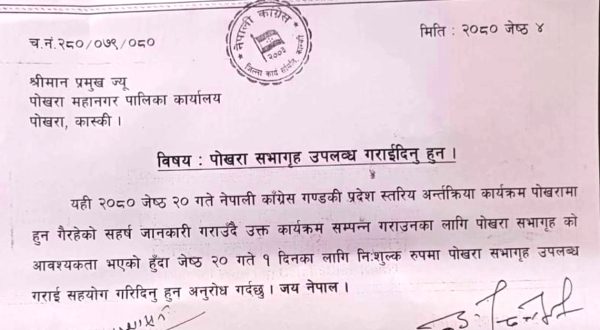 नेपाली काँग्रेस
२००३
च.नं.२८०/०७९/०८०
मिति : २०८० जेष्ठ ४
श्रीमान प्रमुख ज्यू
पोखरा महानगर पालिका कार्यालय
पोखरा, कास्की ।
विषय : पोखरा सभागृह उपलब्ध गराईदिनु हुन ।
यही २०८० जेष्ठ २० गते नेपाली काँग्रेस गण्डकी प्रदेश स्तरिय अर्न्तक्रिया कार्यक्रम पोखरामा
हुन गैरहेको सहर्ष जानकारी गराउँदै उक्त कार्यक्रम सम्पन्न गराउनका लागि पोखरा सभागृह को
आवश्यकता भएको हुँदा जेष्ठ २० गते १ दिनका लागि नि:शुल्क रुपमा पोखरा सभागृह उपलब्ध
गराई सहयोग गरिदिनु हुन अनुरोध गर्दछु । जय नेपाल ।